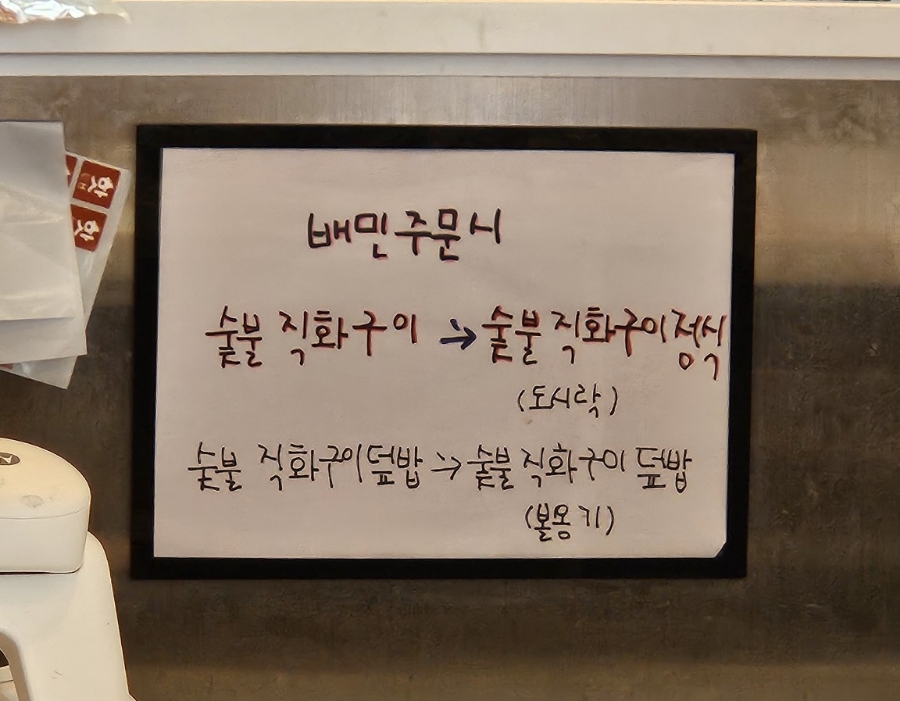 배민주문시
숯불 직화구이 → 숯불 직화구이정식
(도시락)
숯불 직화구이덮밥 → 숯불직화구이 덮밥
(볼용기)
핫
핫